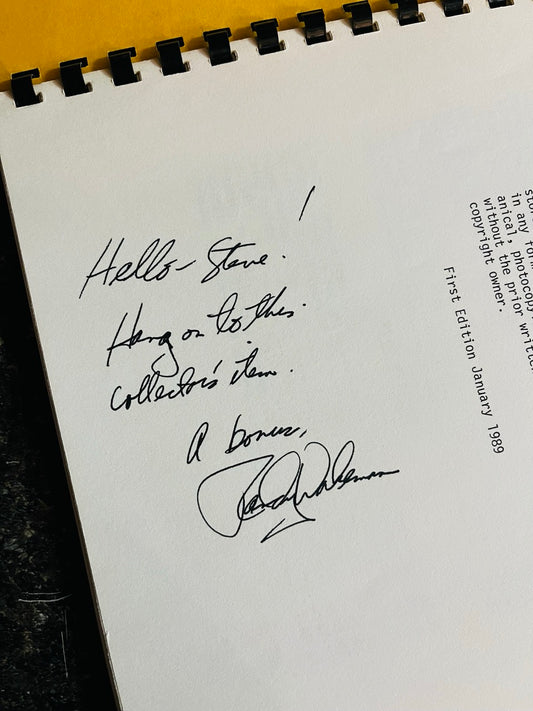 Hello - Steve!
Hang on to this
collector's item.
A bonus,
in any form
anical, photocopy
without the prior written
copyright owner.
First Edition January 1989